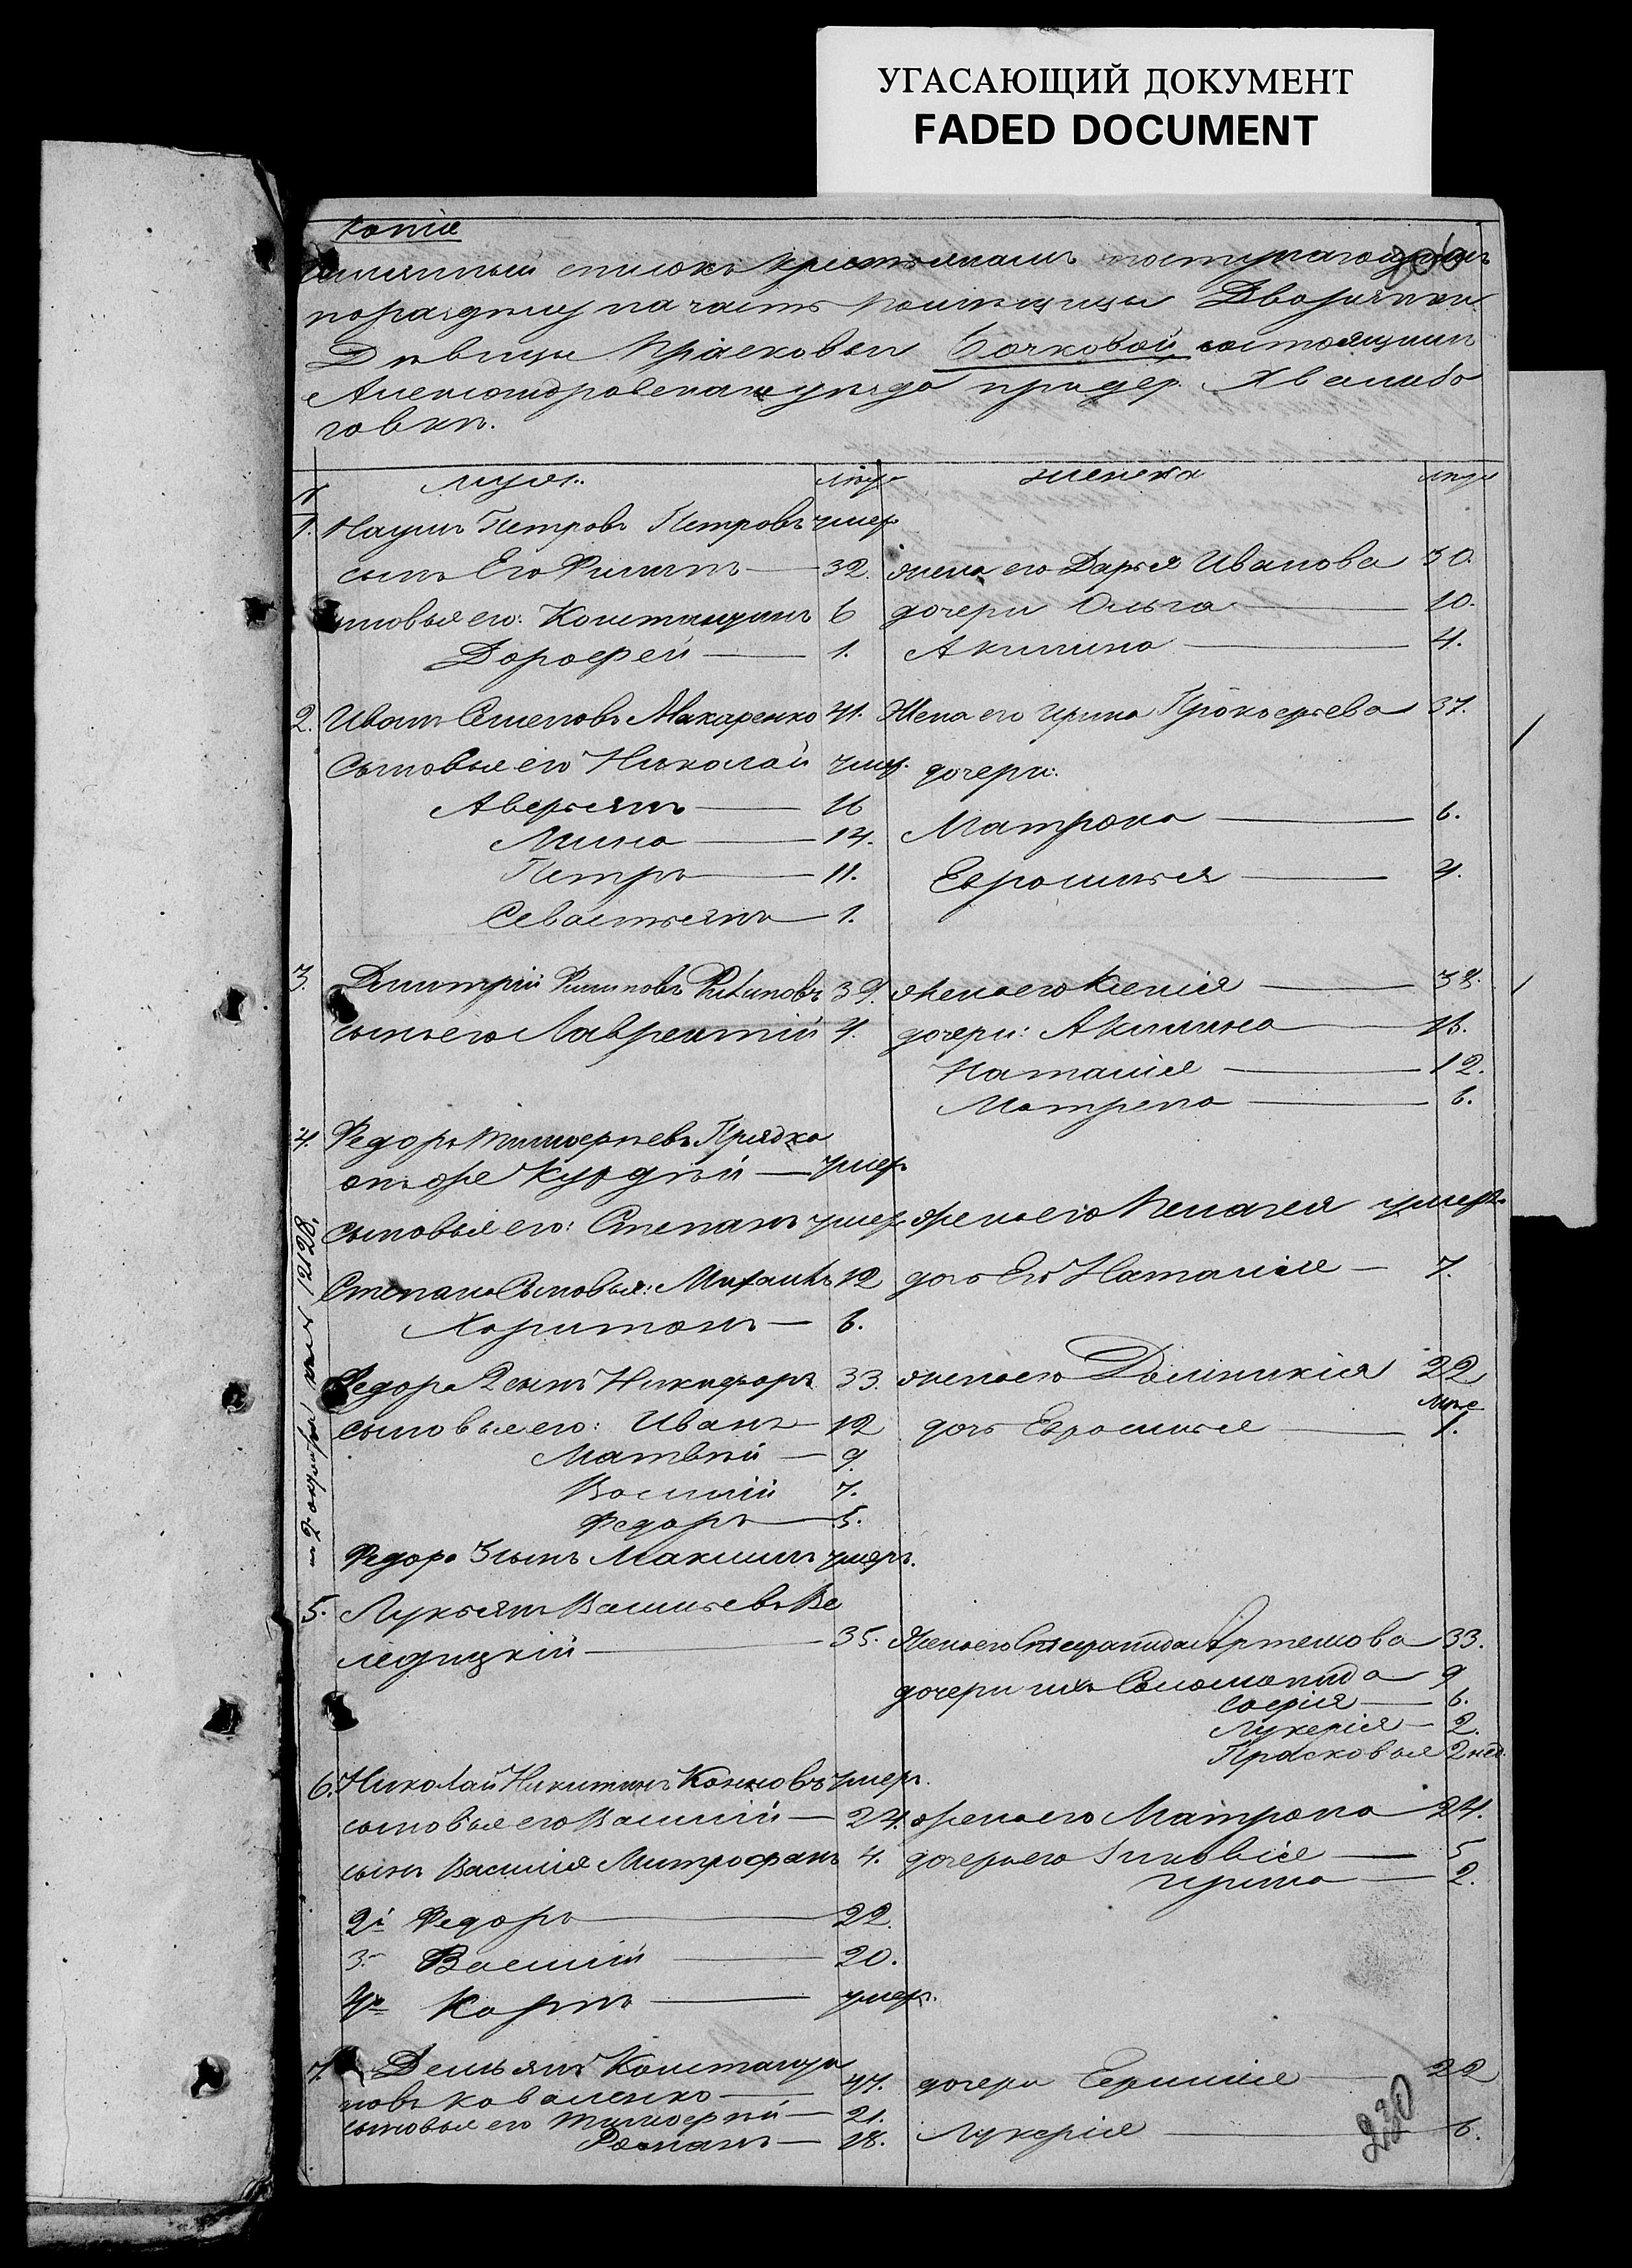 УГАСАЮЩИЙ ДОКУМЕНТ
FADED DOCUMENT
Копія
Имянный списокъ крестьянамъ поступающимъ
по раздѣлу на часть помѣщицы Дворянки
Дѣвицы Прасковьи Бочковой состоящимъ
Александровскаго уѣзда при дер.
говкѣ.
№ муж. лѣта женска лѣта
1. Наумъ Петровъ Петровъ умер.
сынъ Его Филипъ 32. жена его Дарья Иванова 30.
сыновья его: Константинъ 6 дочери Ольга 10.
Дорофей 1. Акилина 4.
2. Иванъ Семеновъ Макаренко 41. Жена его Ирина Прокофьева 37.
Сыновья его Николай умер. дочери:
Аверьянъ 16 Матрона 6.
Мина 14.
Петръ 11. Евросинья 4.
Севастьянъ 1.
3. Дмитрій Филиповъ Филиповъ 39. жена его Ксенія 38.
сынъ его Лаврентій 4. дочери: Акилина 16.
Наталія 12.
Матрена 6.
4. Федоръ Тимофеевъ Прядка
онъ же Курдѣй умер.
сыновья его: Степанъ умер. жена его Пелагея умерл.
Степана Сыновья: Михаилъ 12 дочь Его Наталія 7.
Харитонъ 6.
Федора 2 сынъ Никифоръ 33. жена его Домникія 22
сыновья его: Иванъ 12 дочь Евросинья 1.
Матвѣй 9.
Василій 7.
Федоръ 5.
Федора 3 сынъ Максимъ умеръ.
5. Лукьянъ Васильевъ Ве
ледицкій 35. Жена его Артемова 33.
дочери ихъ Соломонида 9
Софія 6.
Лукерія 2.
Прасковья 2 нед.
6. Николай Никитинъ умер.
сыновья его Василій 24. жена его Матрона 24.
сынъ Василія Митрофанъ 4. дочери его Зиновія 5
Ирина 2.
2й Федоръ 22.
3. Василій 20.
4й Карпъ умер.
7. Демьянъ Константи
новъ Коваленко 47. дочери 22
сыновья его Тимофей 21.
Романъ 18. Лукерія 6.
230